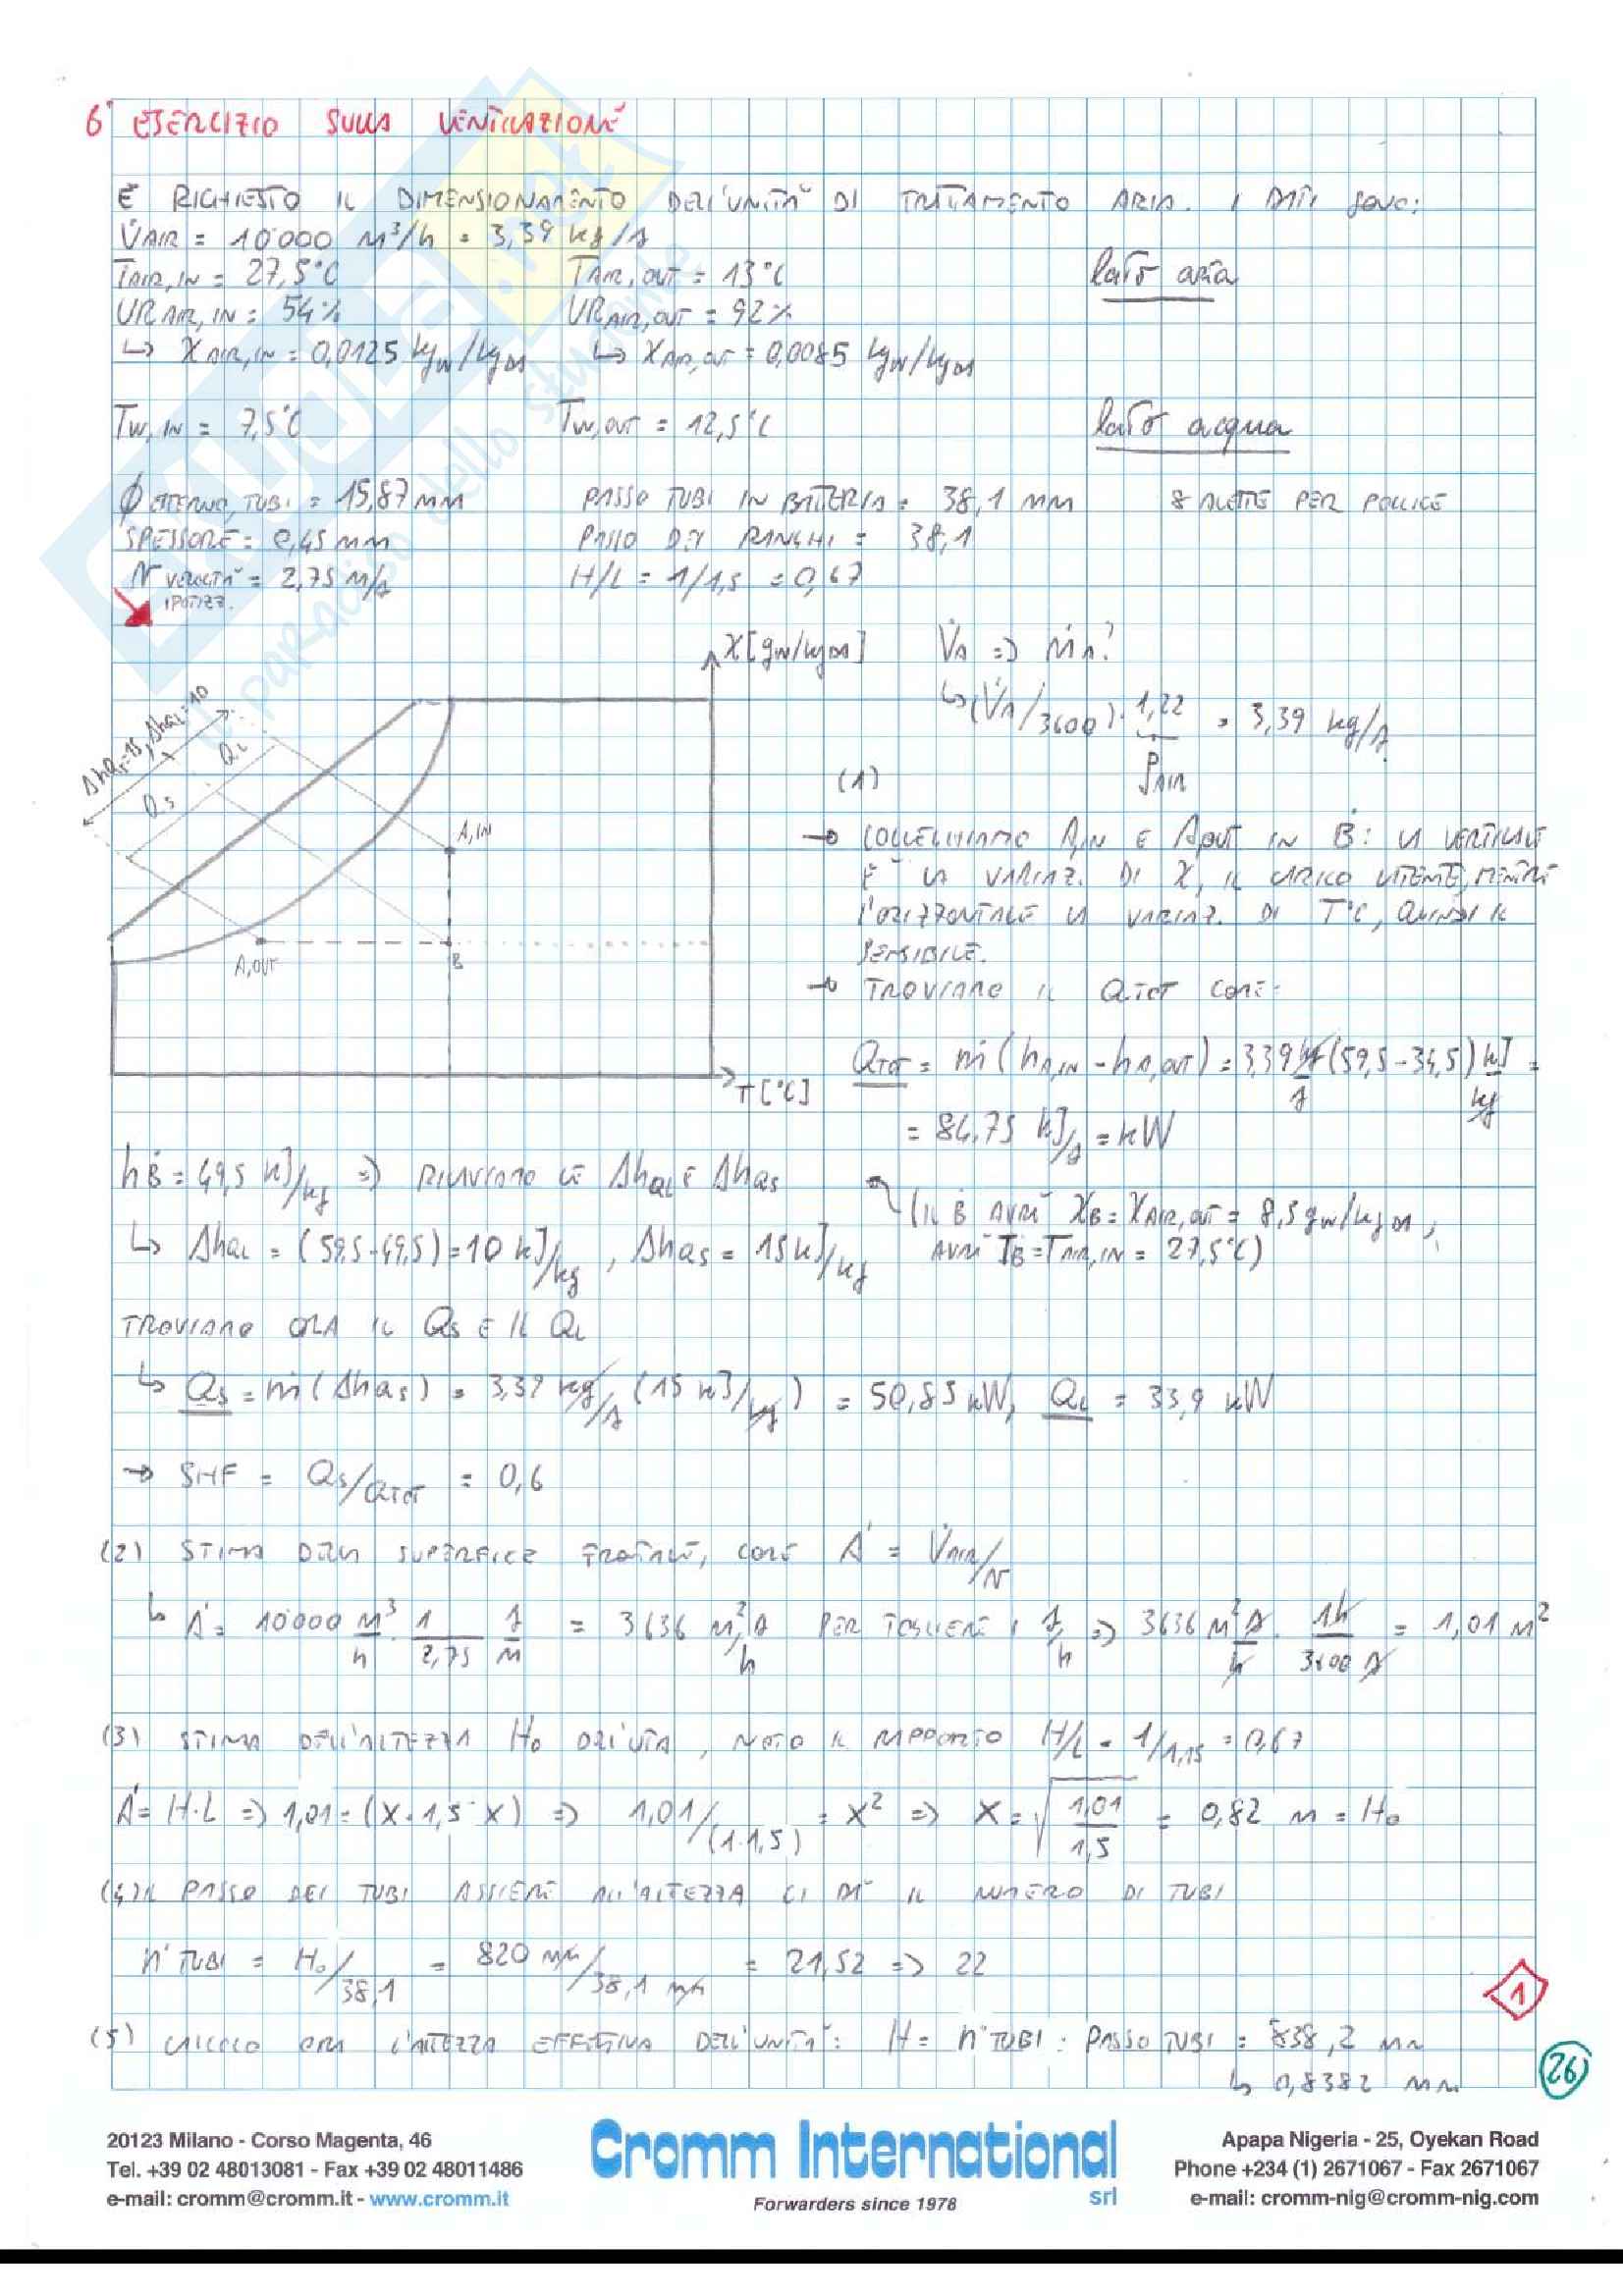 6° ESERCIZIO SULLA VENTILAZIONE
È RICHIESTO IL DIMENSIONAMENTO DELL'UNITÀ DI TRATTAMENTO ARIA. I DATI SONO:
V̇AIR = 10'000 M³/h = 3,39 kg/s
TAIR,IN = 27,5°C TAIR,OUT = 13°C lato aria
URAIR,IN = 54% URAIR,OUT = 92%
↳ XAIR,IN = 0,0125 kgw/kgDA ↳ XAIR,OUT = 0,0085 kgw/kgDA
TW,IN = 7,5°C TW,OUT = 12,5°C lato acqua
ϕ ESTERNO, TUBI = 15,87 MM PASSO TUBI IN BATTERIA = 38,1 MM 8 ALETTE PER POLLICE
SPESSORE = 0,45 MM PASSO DEI RANGHI = 38,1
N VELOCITÀ = 2,75 M/s H/L = 1/1,5 = 0,67
IPOTIZZ.
X[gw/kgDA] V̇A => ṀA?
↳ (V̇A/3600) · 1,22 = 3,39 kg/s
ρAIR
ΔhQs=15, ΔhQL=10
QL
Qs
(1)
A,IN
A,OUT
B
T[°C]
→ COLLEGHIAMO A,IN E A,OUT IN B: LA VERTICALE
È LA VARIAZ. DI X, IL CARICO LATENTE, MENTRE
L'ORIZZONTALE LA VARIAZ. DI T°C, QUINDI IL
SENSIBILE.
→ TROVIAMO IL QTOT COME:
QTOT = ṁ (hA,IN - hA,OUT) = 3,39 kg/s (59,5-34,5) kJ/kg =
= 84,75 kJ/s = kW
hB = 49,5 kJ/kg => RICAVIAMO LE ΔhQL E ΔhQS
(IL B AVRÀ XB = XAIR,OUT = 8,5 gw/kgDA,
AVRÀ TB = TAIR,IN = 27,5°C)
↳ ΔhQL = (59,5-49,5) = 10 kJ/kg, ΔhQS = 15 kJ/kg
TROVIAMO ORA IL QS E IL QL
↳ QS = ṁ (ΔhQS) = 3,39 kg/s (15 kJ/kg) = 50,85 kW, QL = 33,9 kW
→ SHF = QS/QTOT = 0,6
(2) STIMA DELLA SUPERFICE FRONTALE, COME A' = V̇AIR/N
↳ A' = 10'000 M³/h · 1/2,75 s/M = 3636 M² s/h PER TOGLIERE I s/h => 3636 M² s/h · 1h/3600 s = 1,01 M²
(3) STIMA DELL'ALTEZZA H₀ DELL'UTA, NOTO IL RAPPORTO H/L = 1/1,15 = 0,67
A' = H·L => 1,01 = (X · 1,5 · X) => 1,01/(1·1,5) = X² => X = √1,01/1,5 = 0,82 M = H₀
(4) IL PASSO DEI TUBI ASSIEME ALL'ALTEZZA CI DÀ IL NUMERO DI TUBI
N° TUBI = H₀/38,1 = 820 MM/38,1 MM = 21,52 => 22
(5) CALCOLO ORA L'ALTEZZA EFFETTIVA DELL'UNITÀ: H = N° TUBI · PASSO TUBI = 838,2 MM
↳ 0,8382 MM
1
26
20123 Milano - Corso Magenta, 46
Tel. +39 02 48013081 - Fax +39 02 48011486
e-mail: cromm@cromm.it - www.cromm.it
Cromm International
srl
Forwarders since 1978
Apapa Nigeria - 25, Oyekan Road
Phone +234 (1) 2671067 - Fax 2671067
e-mail: cromm-nig@cromm-nig.com